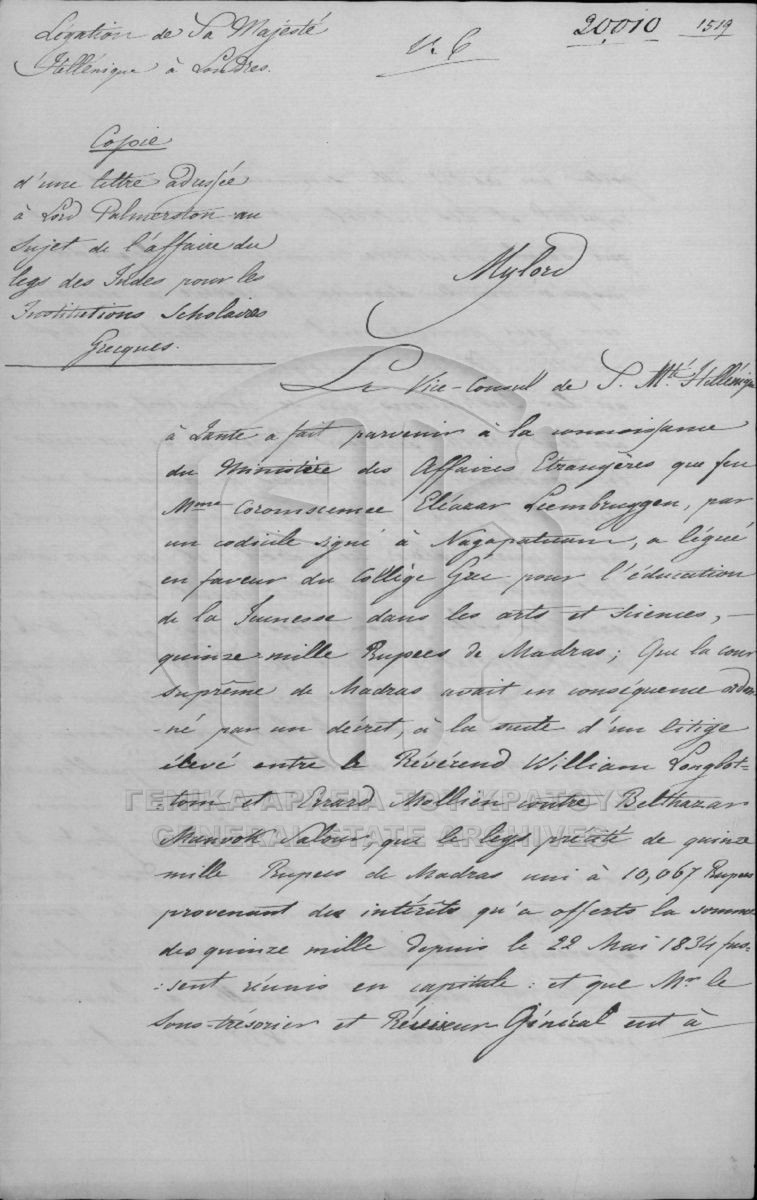 Légation de Sa Majesté
Hellénique à Londres.
20010 1519
Copie
d'une lettre adressée
à Lord Palmerston au
sujet de l'affaire du
legs des Indes pour les
Institutions Scholaires
Grecques.
Mylord
Le Vice-Consul de S. Mté Hellénique
à Zante a fait parvenir à la connaissance
du Ministère des Affaires Etrangères que feu
Mme Eléazar Leembruggen, par
un codicile signé à Nagapatnam, a légué
en faveur du Collège Grec pour l'éducation
de la Jeunesse dans les arts et sciences, –
quinze mille Rupees de Madras; Que la cour
suprême de Madras avait en conséquence ordon-
-né par un décret, à la suite d'un litige
élevé entre le Révérend William Longbot-
-tom et Erard Mollien contre Belthazar
que le legs précité de quinze
mille Rupees de Madras uni à 10,067 Rupees
provenant des intérêts qu'a offerts la somme
des quinze mille depuis le 22 Mai 1834 fus-
-sent réunis en capitale: et que Mr le
Sous-trésorier et Général eut à
ΓΕΝΙΚΑ ΑΡΧΕΙΑ ΤΟΥ ΚΡΑΤΟΥΣ
GENERAL STATE ARCHIVES